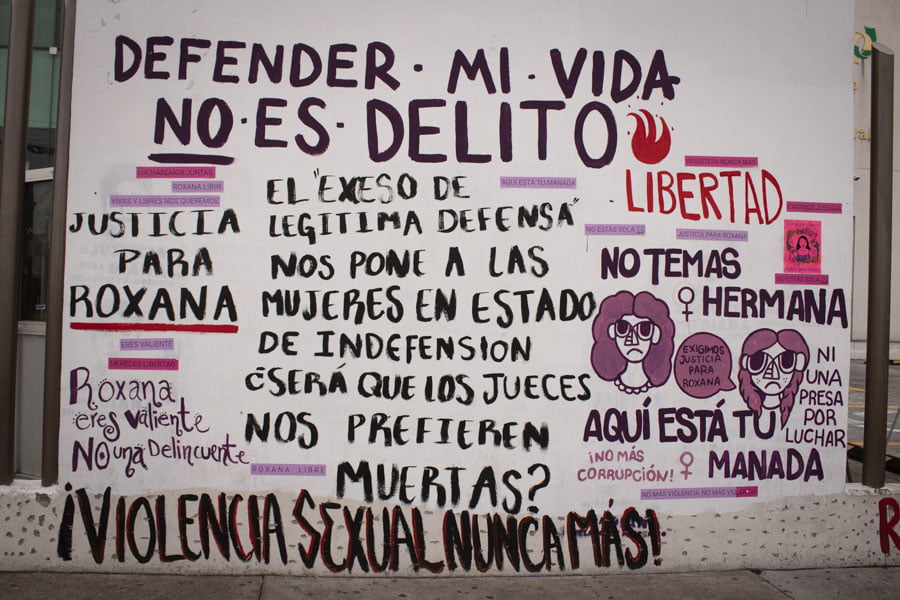 DEFENDER · MI · VIDA
NO · ES · DELITO
LUCHARDIAOS JUNTAS
ROXANA LIBRE
VIVAS Y LIBRES NOS QUEREMOS
JUSTICIA
PARA
ROXANA
ERES VALIENTE
MERECES LIBERTAD
Roxana
eres valiente
NO una Delincuente
EL "EXESO DE
LEGITIMA DEFENSA"
NOS PONE A LAS
MUJERES EN ESTADO
DE INDEFENSIÓN
¿SERÁ QUE LOS JUECES
NOS PREFIEREN
MUERTAS?
ROXANA LIBRE
AQUÍ ESTÁ TU MANADA
INJUSTICIA NUNCA MÁS
LIBERTAD
NO ESTÁS SOLA
JUSTICIA PARA ROXANA
EXIGIMOS JUSTICIA
NO ESTÁS SOLA
NO TEMAS
♀ HERMANA
EXIGIMOS
JUSTICIA
PARA
ROXANA
NI
UNA
PRESA
POR
LUCHAR
AQUÍ ESTÁ TU
♀ MANADA
¡NO MÁS
CORRUPCIÓN!
NO MÁS VIOLENCIA NO MÁS
¡VIOLENCIA SEXUAL NUNCA MÁS!
R